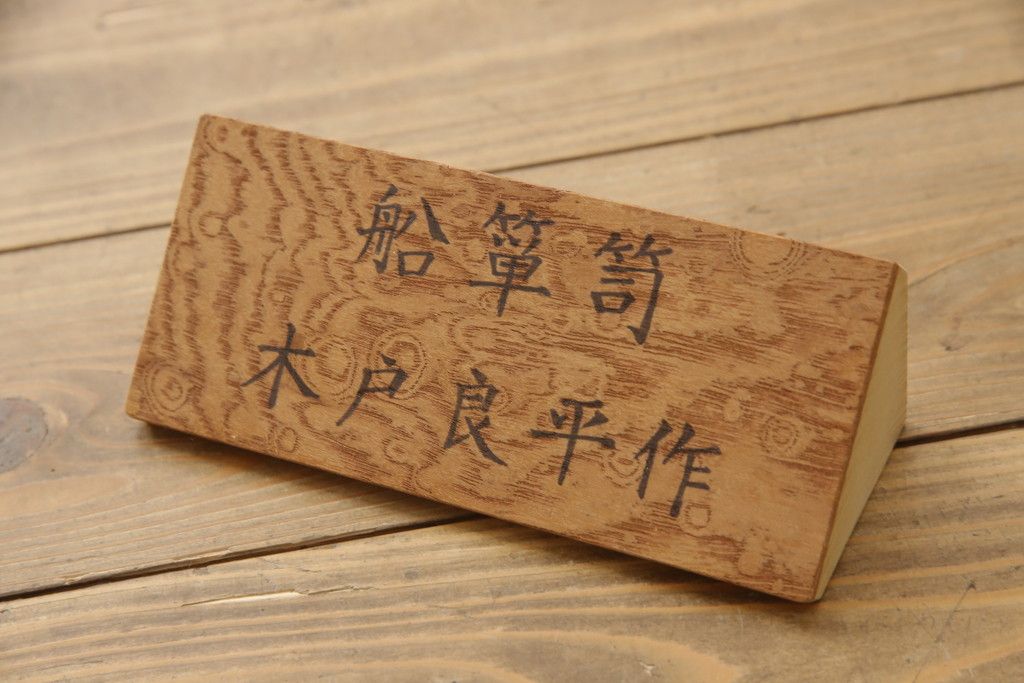 船箪笥
木戸良平作